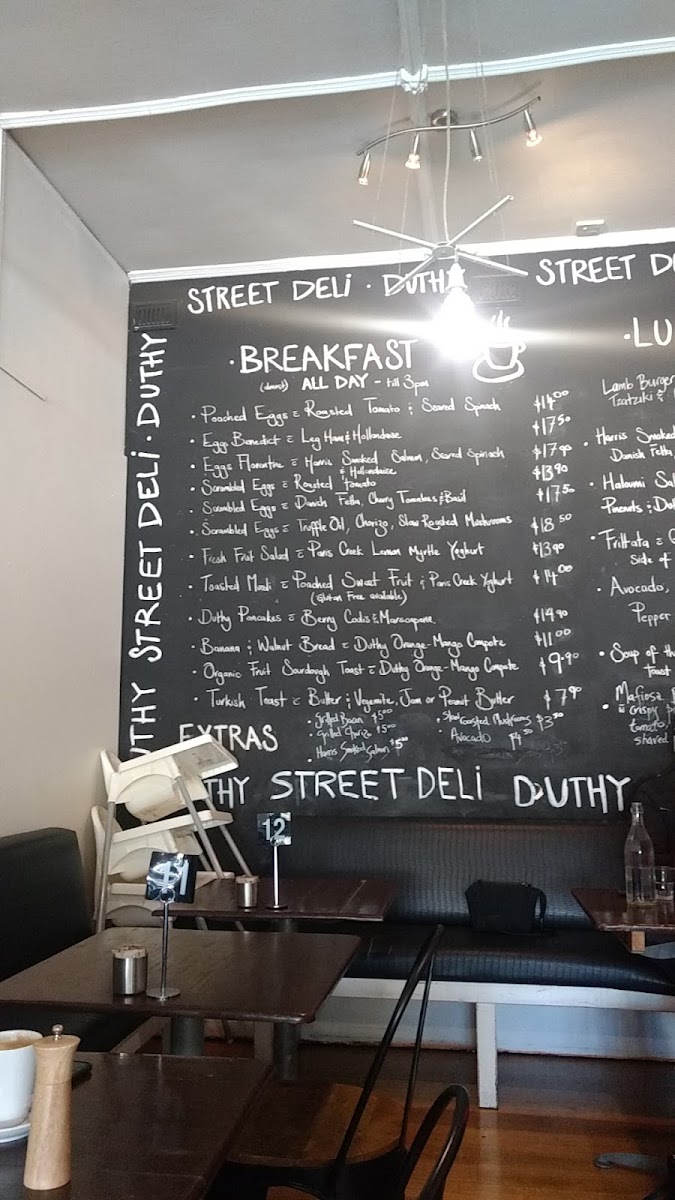 STREET DELI · DUTHY
STREET DE
DUTHY STREET DELI · DUTHY
· BREAKFAST
ALL DAY - till 3pm
· Poached Eggs = Roasted Tomato & Seared Spinach $14.00
· Eggs Benedict = Leg Ham & Hollandaise $17.50
· Eggs Florentine = Harris Smoked Salmon, Seared Spinach & Hollandaise $17.90
· Scrambled Eggs = Roasted Tomato $13.90
· Scrambled Eggs = Danish Fetta, Cherry Tomatoes & Basil $17.50
· Scrambled Eggs = Truffle Oil, Chorizo, Slow Roasted Mushrooms $18.50
· Fresh Fruit Salad = Paris Creek Lemon Myrtle Yoghurt $13.90
· Toasted Muesli = Poached Sweet Fruit & Paris Creek Yoghurt $14.00
(Gluten Free available)
· Duthy Pancakes = Berry Coulis & Marscapone $14.90
· Banana & Walnut Bread = Duthy Orange-Mango Compote $11.00
· Organic Fruit Sourdough Toast = Duthy Orange-Mango Compote $9.90
· Turkish Toast = Butter & Vegemite, Jam or Peanut Butter $7.90
EXTRAS
· Grilled Bacon $5.00
· Grilled Chorizo $5.00
· Harris Smoked Salmon $5.00
· Slow Roasted Mushrooms $3.50
Avocado $4.50
THY STREET DELI DUTHY
· LU
Lamb Burger
Tzatziki &
· Harris Smoked
Danish Fetta,
· Haloumi Sal
Pinenuts &
· Frittata =
Side of
· Avocado,
Pepper
· Soup of the
Toast
· Mafiosa
= Crispy
tomato,
shaved
12
11